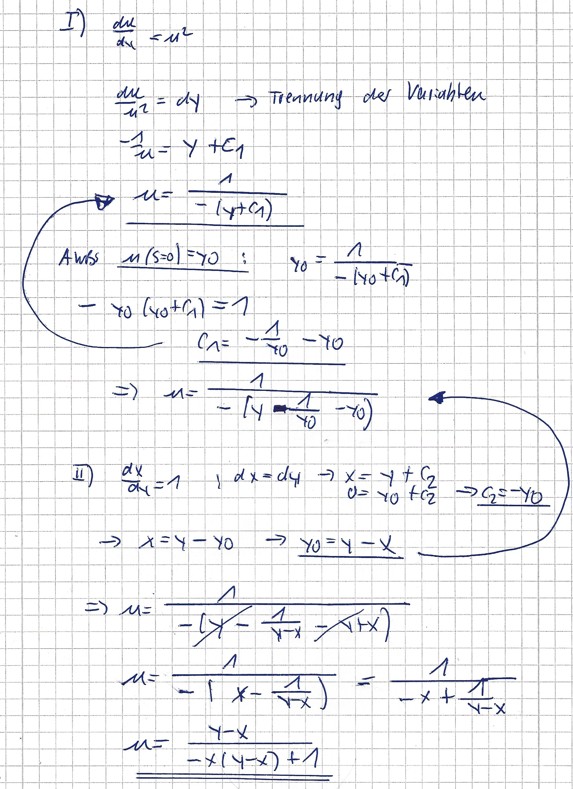 I) du/dy = u²
du/u² = dy → Trennung der Variablen
-1/u = y + C1
u = 1/(-(y+C1))
AWBs u(s=0) = y0 : y0 = 1/(-(y0+C1))
- y0 (y0+C1) = 1
C1 = -1/y0 - y0
=> u = 1/(-(y - 1/y0 - y0))
II) dx/dy = 1 , dx = dy → x = y + C2
0 = y0 + C2 → C2 = -y0
→ x = y - y0 → y0 = y - x
=> u = 1/(-(y - 1/(y-x) - y+x))
u = 1/(-( x - 1/(y-x))) = 1/(-x + 1/(y-x))
u = (y-x)/(-x(y-x)+1)